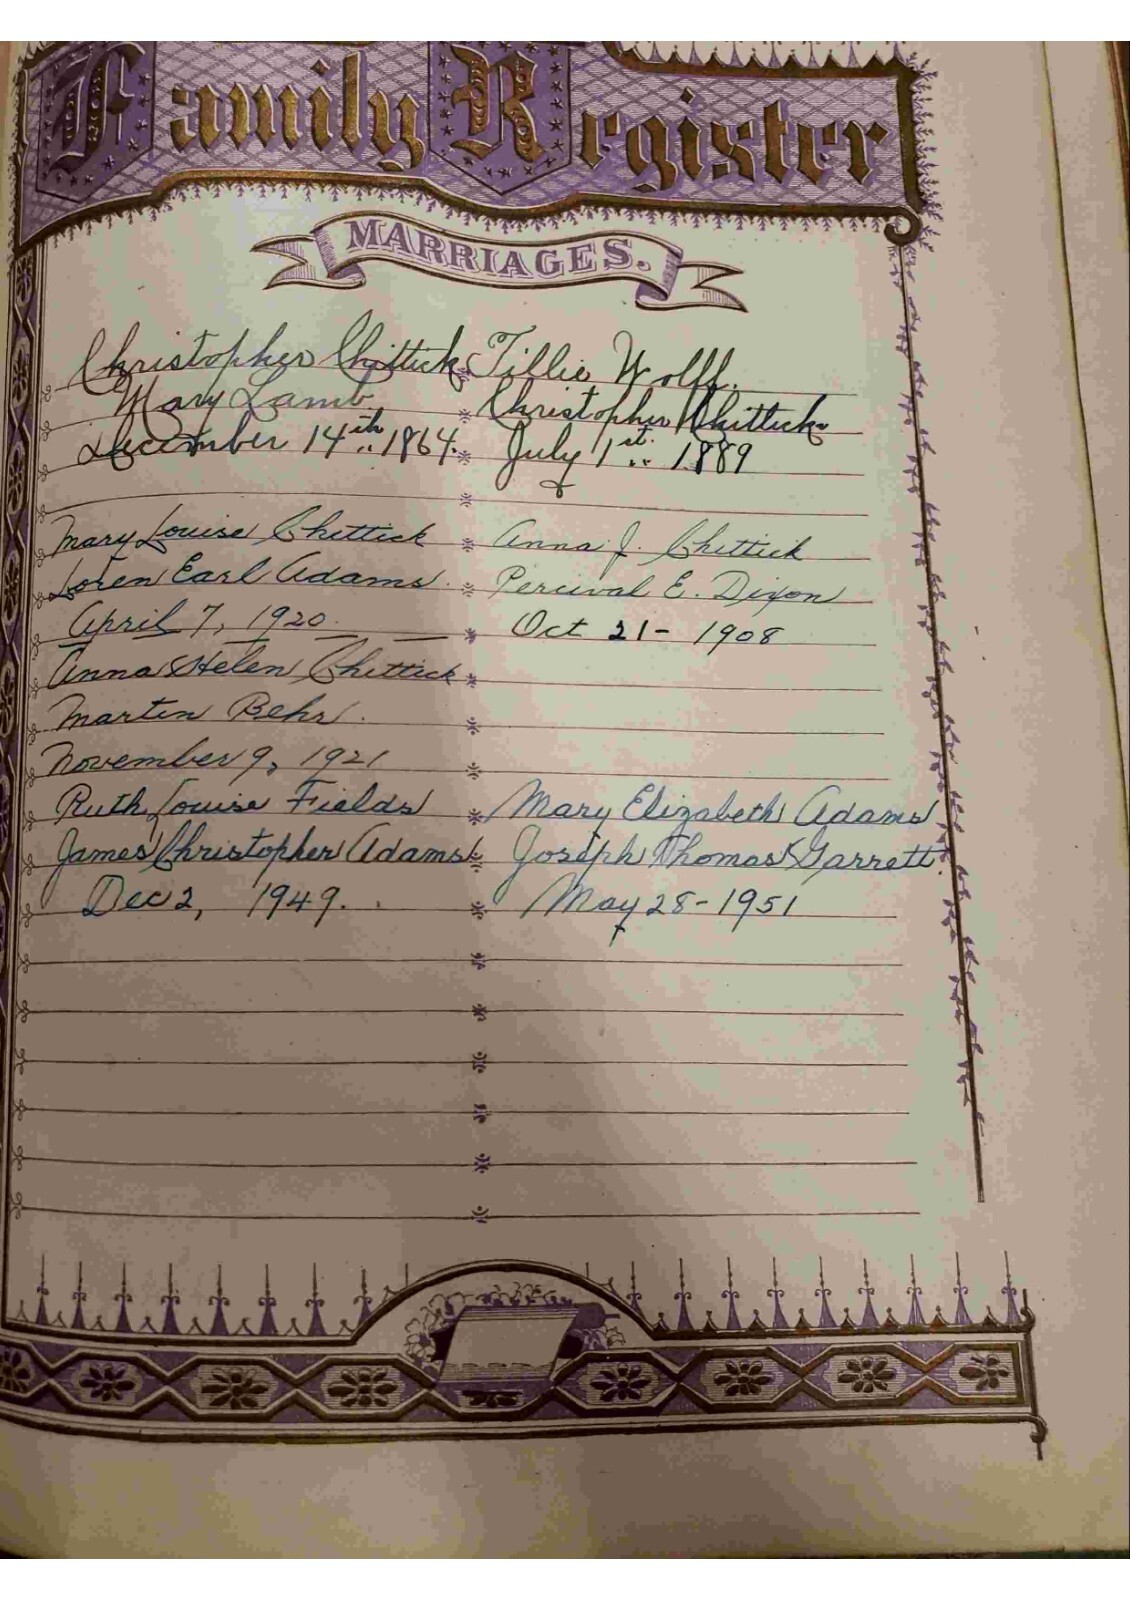 Family Register
MARRIAGES.
Christopher Chittick
Mary Lamb
December 14th 1864.
Tillie Wolff.
Christopher Chittick
July 1st 1889
Mary Louise Chittick
Loren Earl Adams.
April 7, 1920.
Anna J. Chittick
Percival E. Dixon
Oct 21 - 1908
Anna Helen Chittick
Martin Behr.
November 9, 1921
Ruth Louise Fields
James Christopher Adams
Dec 2, 1949.
Mary Elizabeth Adams
Joseph Thomas Garrett.
May 28 - 1951